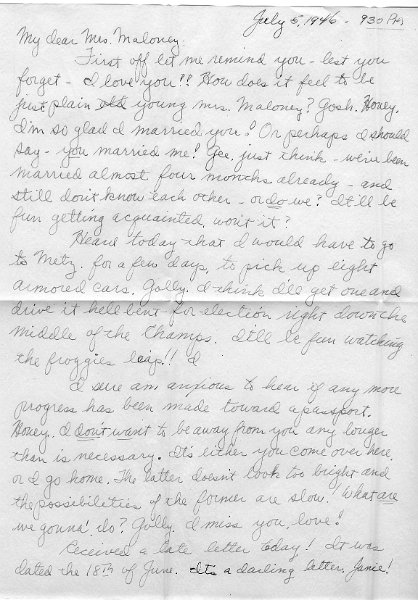 July 5, 1946 - 930 PM
My dear Mrs. Maloney:
First off let me remind you - lest you
forget - I love you!! How does it feel to be
just plain old young Mrs. Maloney? Gosh, Honey,
I'm so glad I married you! Or perhaps I should
say - you married me! Gee, just think - we've been
married almost four months already - and
still don't know each other - or do we? It'll be
fun getting acquainted, won't it?
Heard today that I would have to go
to Metz, for a few days, to pick up eight
armored cars. Golly, I think I'll get one and
drive it hell bent for election right down the
middle of the Champs. It'll be fun watching
the froggies leap!! I
I sure am anxious to hear if any more
progress has been made toward a passport.
Honey, I don't want to be away from you any longer
than is necessary. It's either you come over here,
or I go home. The latter doesn't look too bright and
the possibilities of the former are slow! What are
we gonna' do? Golly I miss you, love!
Received a late letter today! It was
dated the 18th of June. It's a darling letter, Janie!